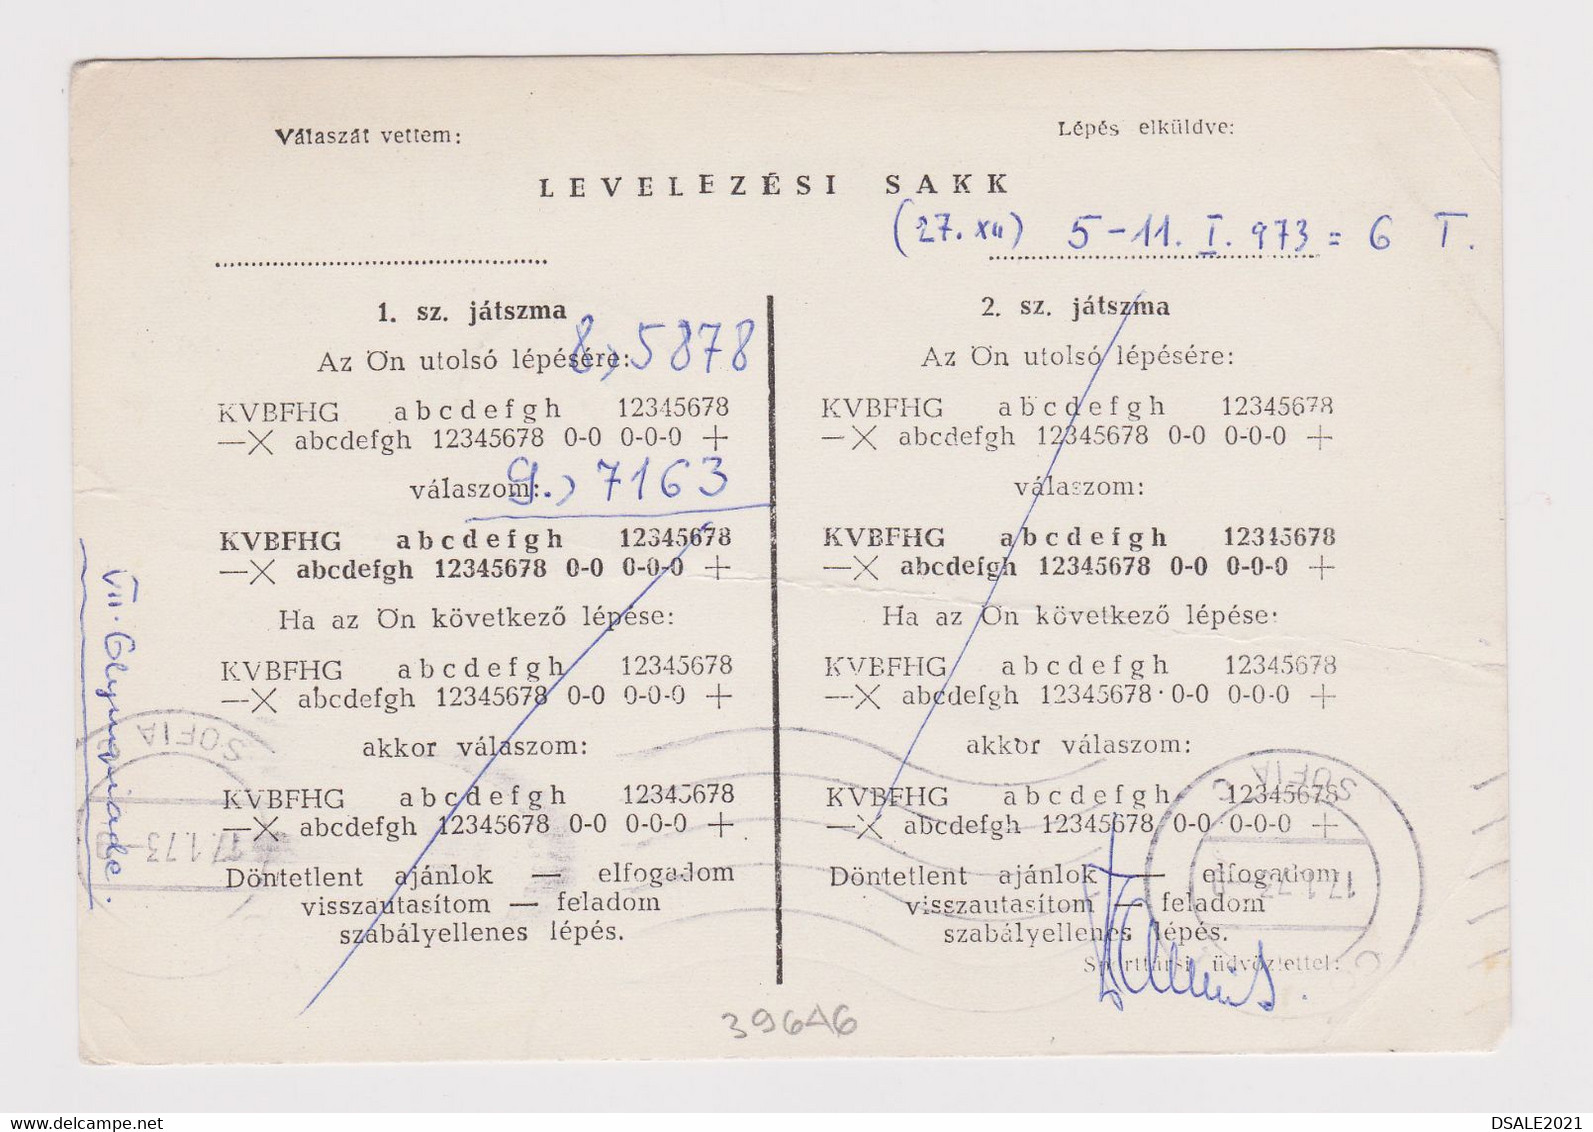 Válaszát vettem:
Lépés elküldve:
LEVELEZÉSI SAKK
(27. XII) 5-11. I. 973 = 6 T.
1. sz. játszma
Az Ön utolsó lépésére: 8.) 5878
KVBFHG abcdefgh 12345678
—X abcdefgh 12345678 0-0 0-0-0 +
válaszom: 9.) 7163
KVBFHG abcdefgh 12345678
—X abcdefgh 12345678 0-0 0-0-0 +
Ha az Ön következő lépése:
KVBFHG abcdefgh 12345678
—X abcdefgh 12345678 0-0 0-0-0 +
akkor válaszom:
KVBFHG abcdefgh 12345678
—X abcdefgh 12345678 0-0 0-0-0 +
Döntetlent ajánlok — elfogadom
visszautasítom — feladom
szabályellenes lépés.
2. sz. játszma
Az Ön utolsó lépésére:
KVBFHG abcdefgh 12345678
—X abcdefgh 12345678 0-0 0-0-0 +
válaszom:
KVBFHG abcdefgh 12345678
—X abcdefgh 12345678 0-0 0-0-0 +
Ha az Ön következő lépése:
KVBFHG abcdefgh 12345678
—X abcdefgh 12345678 0-0 0-0-0 +
akkor válaszom:
KVBFHG abcdefgh 12345678
—X abcdefgh 12345678 0-0 0-0-0 +
Döntetlent ajánlok — elfogadom
visszautasítom — feladom
szabályellenes lépés.
Sporttársi üdvözlettel:
VII. Olympiade.
SOFIA
17.1.73
SOFIA C
17.1.73
39646
DSALE2021